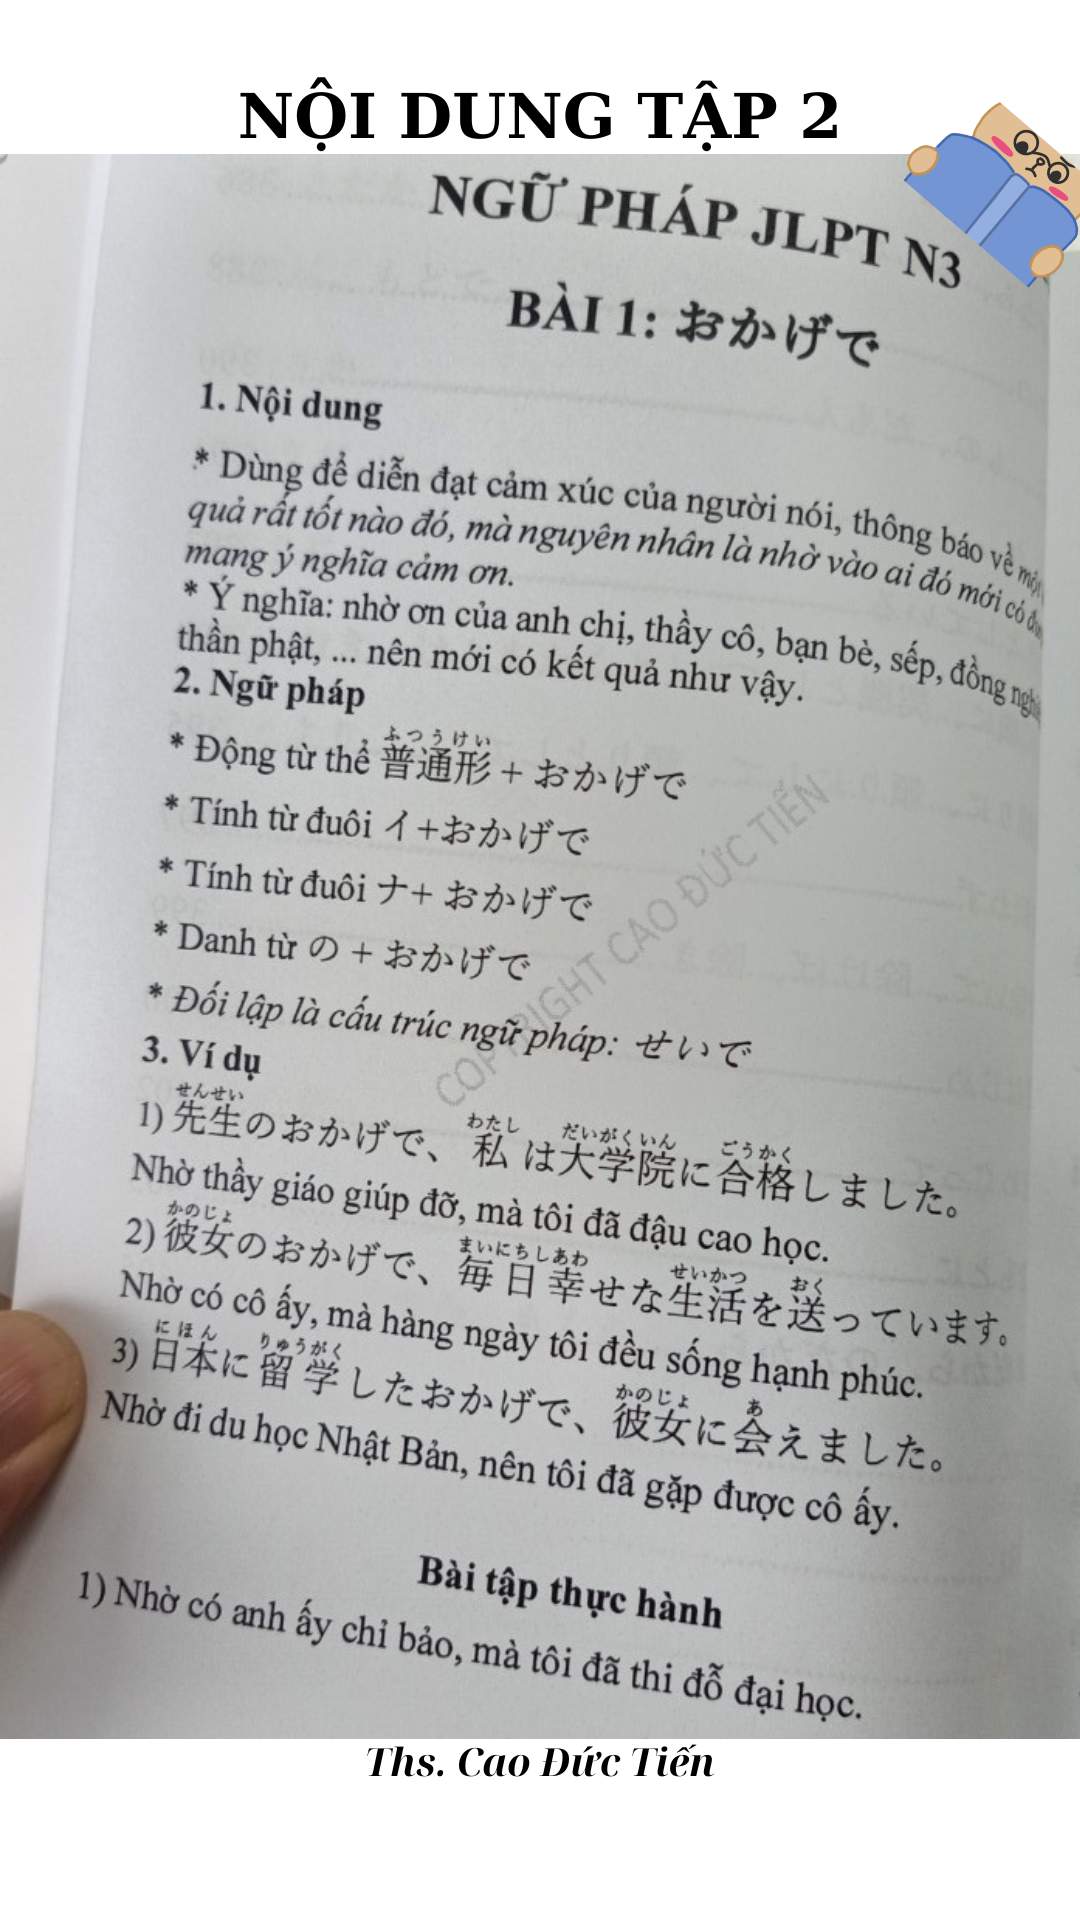 NỘI DUNG TẬP 2
NGỮ PHÁP JLPT N3
BÀI 1: おかげで
1. Nội dung
* Dùng để diễn đạt cảm xúc của người nói, thông báo về một
quả rất tốt nào đó, mà nguyên nhân là nhờ vào ai đó mới có
mang ý nghĩa cảm ơn.
* Ý nghĩa: nhờ ơn của anh chị, thầy cô, bạn bè, sếp, đồng
thần phật, ... nên mới có kết quả như vậy.
2. Ngữ pháp
ふつうけい
* Động từ thể 普通形 + おかげで
* Tính từ đuôi イ+おかげで
* Tính từ đuôi ナ+ おかげで
* Danh từ の + おかげで
* Đối lập là cấu trúc ngữ pháp: せいで
COPYRIGHT CAO ĐỨC TIẾN
3. Ví dụ
せんせい わたし だいがくいん ごうかく
1) 先生のおかげで、 私 は大学院に合格しました。
Nhờ thầy giáo giúp đỡ, mà tôi đã đậu cao học.
かのじょ まいにちしあわ せいかつ おく
2) 彼女のおかげで、毎日幸せな生活を送っています。
Nhờ có cô ấy, mà hàng ngày tôi đều sống hạnh phúc.
にほん りゅうがく かのじょ あ
3) 日本に留学したおかげで、彼女に会えました。
Nhờ đi du học Nhật Bản, nên tôi đã gặp được cô ấy.
Bài tập thực hành
1) Nhờ có anh ấy chỉ bảo, mà tôi đã thi đỗ đại học.
Ths. Cao Đức Tiến